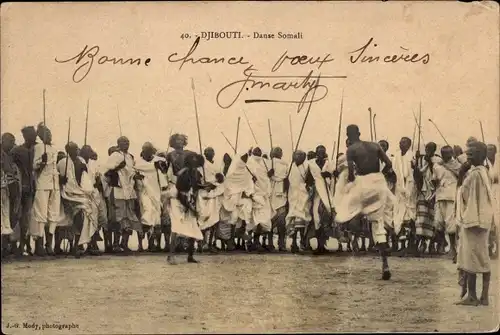 40. - DJIBOUTI. - Danse Somali
Bonne chance, vœux sincères
J.-G. Mody, photographe